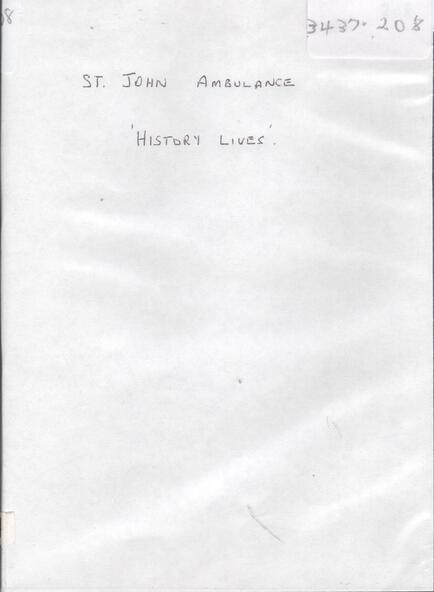 8
3437.208
ST. JOHN AMBULANCE
'HISTORY LIVES'.